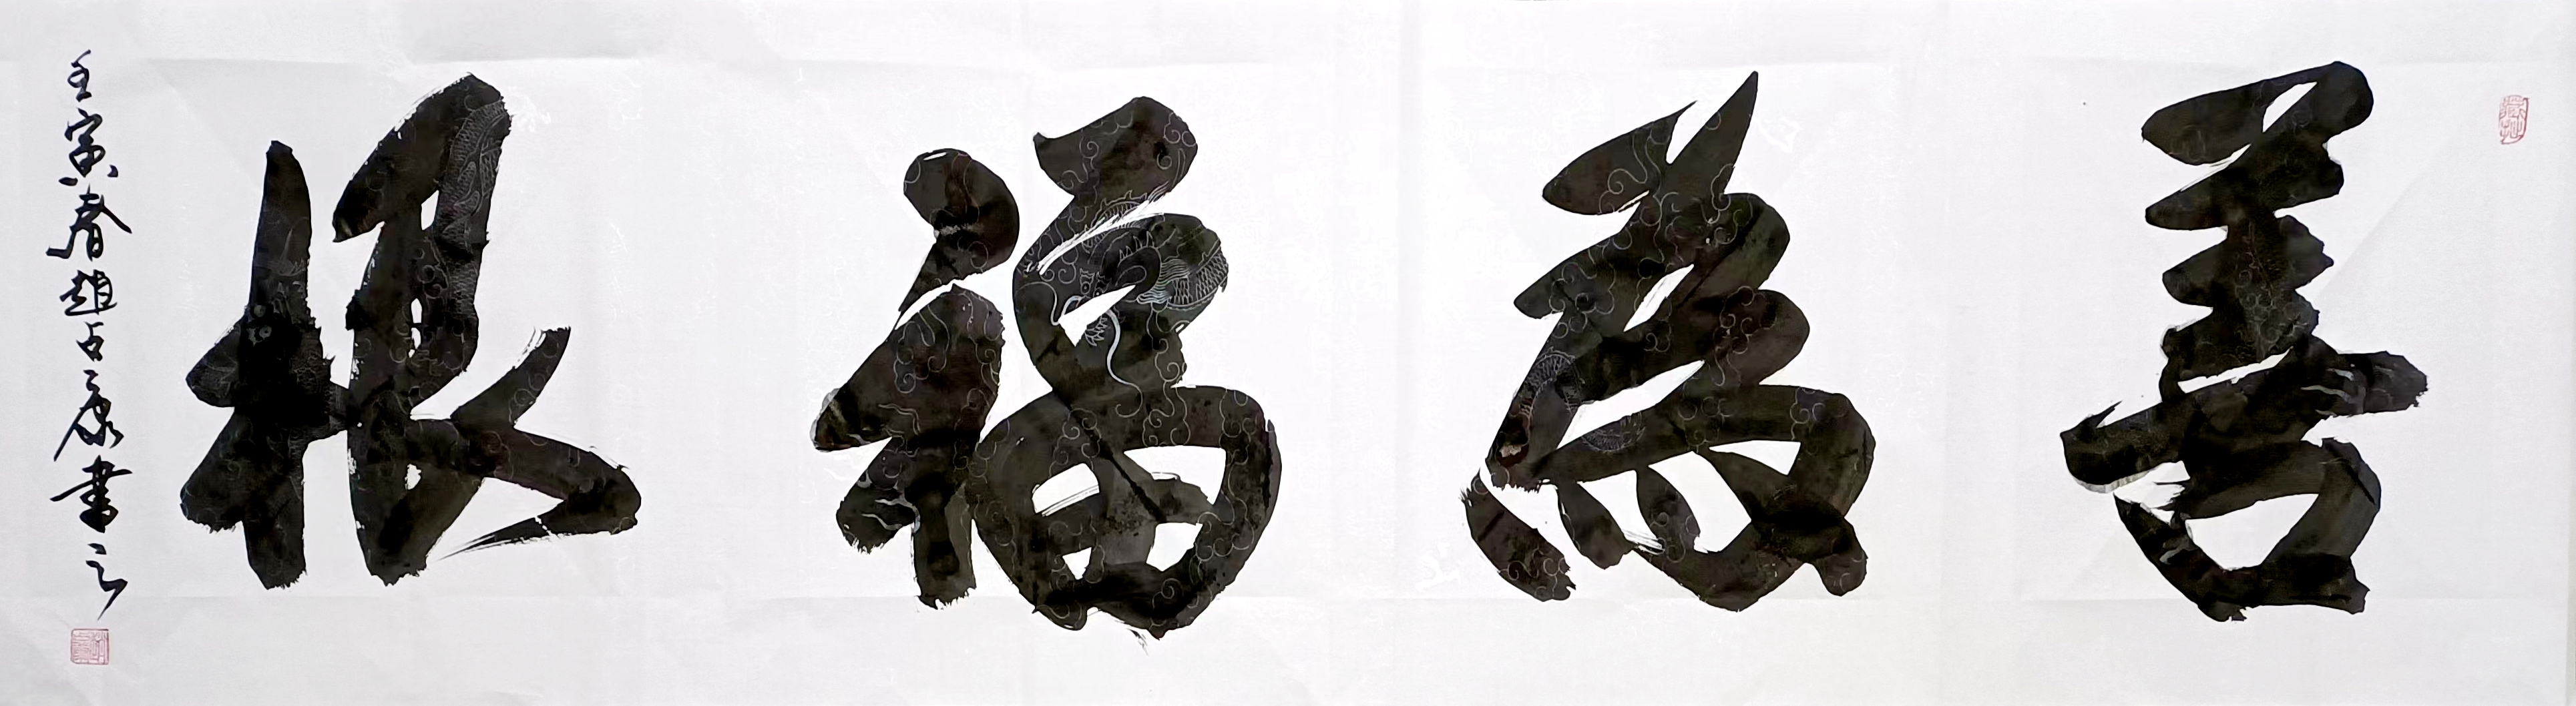 善為福根
壬寅春趙占彥書之